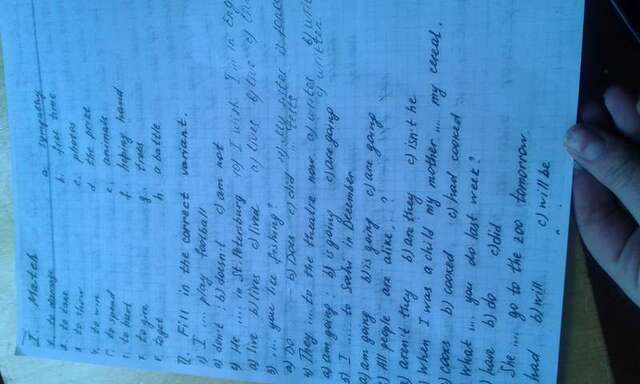 I. Match
1. to damage a. sympathy
2. to take b. free time
3. to show c. photos
4. to win d. the prize
5. to spend e. animals
6. to hurt f. helping hand
7. to give g. trees
h. a battle
II. Fill in the correct variant.
1) I .... play football
a) don't b) doesn't c) am not
2) He .... in St. Petersburg
a) live b) lives c) lived
3) .... you like fishing?
a) Do b) Does c) did
4) They .... to the theatre now.
a) am going b) is going c) are going
5) I .... to Sochi in December
a) am going b) is going c) are going
6) All people are alike, ...?
a) aren't they b) are they c) isn't he
When I was a child my mother .... my cereal.
b) cooked c) had cooked
What .... you do last week?
b) do c) did
She .... go to the zoo tomorrow.
had b) will c) will be